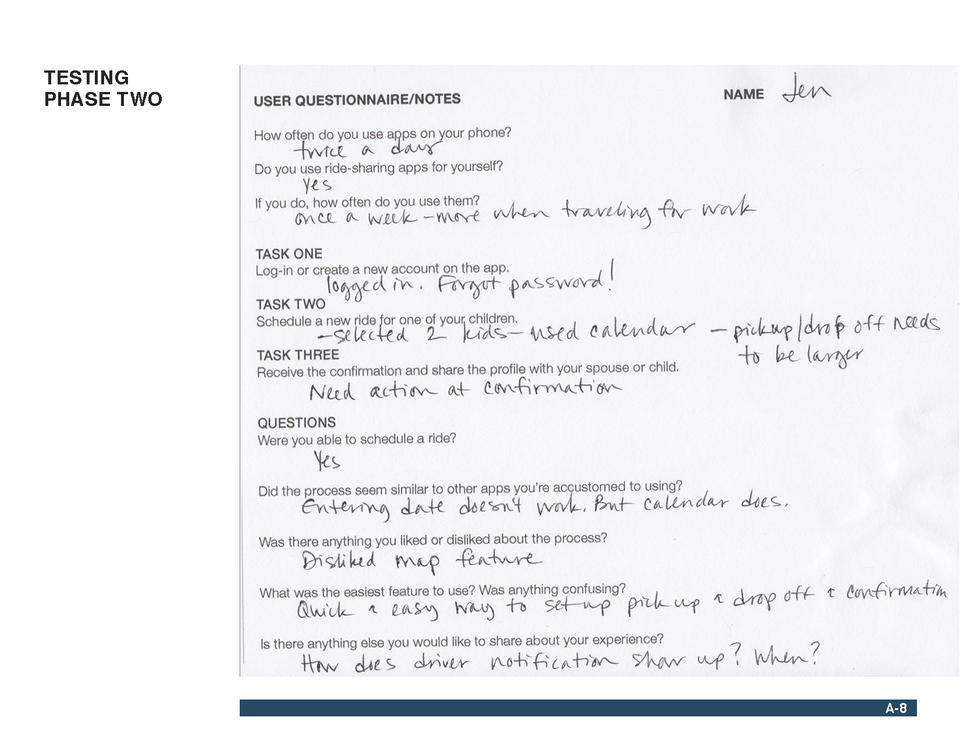 TESTING
PHASE TWO
USER QUESTIONNAIRE/NOTES
NAME Jen
How often do you use apps on your phone?
twice a day
Do you use ride-sharing apps for yourself?
Yes
If you do, how often do you use them?
once a week - more when traveling for work
TASK ONE
Log-in or create a new account on the app.
logged in. Forgot password!
TASK TWO
Schedule a new ride for one of your children.
- selected 2 kids - used calendar - pickup/drop off needs
to be larger
TASK THREE
Receive the confirmation and share the profile with your spouse or child.
Need action at confirmation
QUESTIONS
Were you able to schedule a ride?
Yes
Did the process seem similar to other apps you're accustomed to using?
Entering date doesn't work. But calendar does.
Was there anything you liked or disliked about the process?
Disliked map feature
What was the easiest feature to use? Was anything confusing?
Quick & easy way to set up pick up & drop off & confirmation
Is there anything else you would like to share about your experience?
How does driver notification show up? When?
A-8